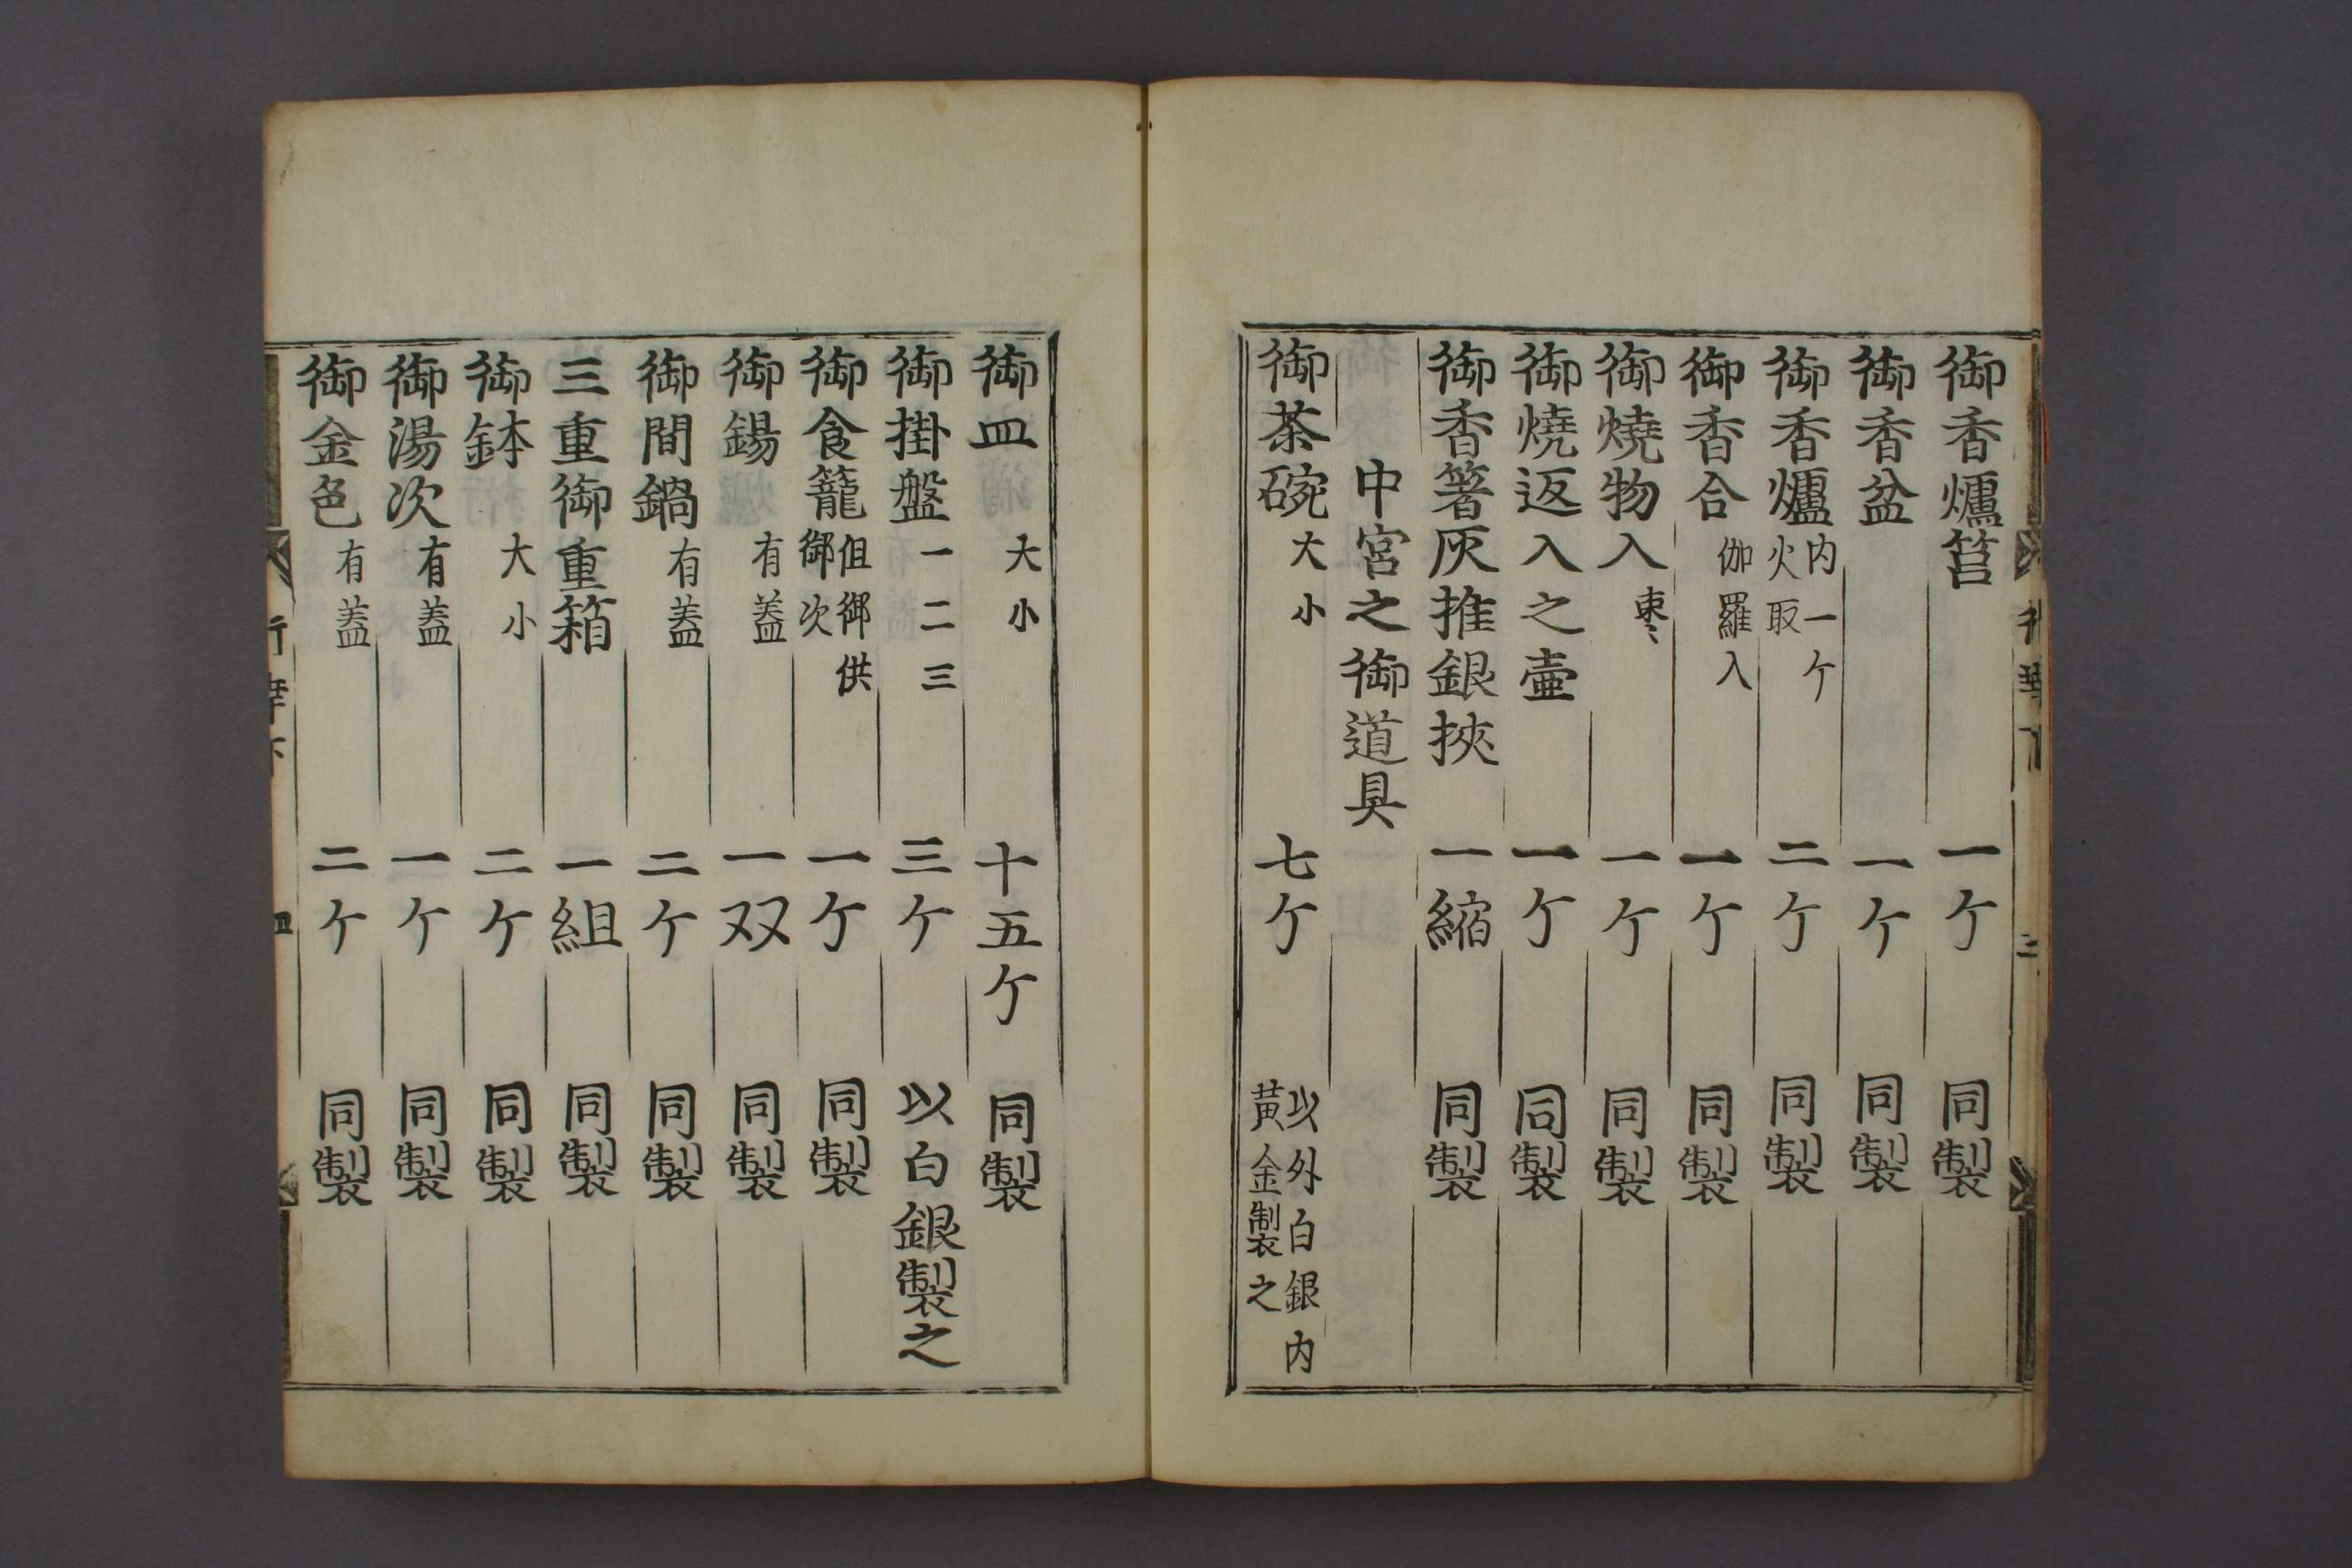 御香爐筥 一ケ 同製
御香盆 一ケ 同製
御香爐 内一ケ 火取 二ケ 同製
御香合 伽羅入 一ケ 同製
御燒物入 一ケ 同製
御燒返入之壷 一ケ 同製
御香箸灰推銀挾 一縮 同製
中宮之御道具
御茶碗 大小 七ケ 以外白銀内 黄金製之
御皿 大小 十五ケ 同製
御掛盤 一二三 三ケ 以白銀製之
御食籠 但御供 御次 一ケ 同製
御錫 有蓋 一双 同製
御間鍋 有蓋 二ケ 同製
三重御重箱 一組 同製
御鉢 大小 二ケ 同製
御湯次 有蓋 一ケ 同製
御金色 有蓋 二ケ 同製